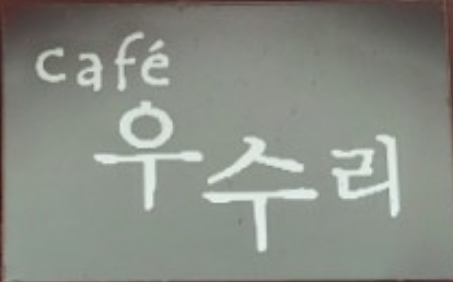 café
우수리